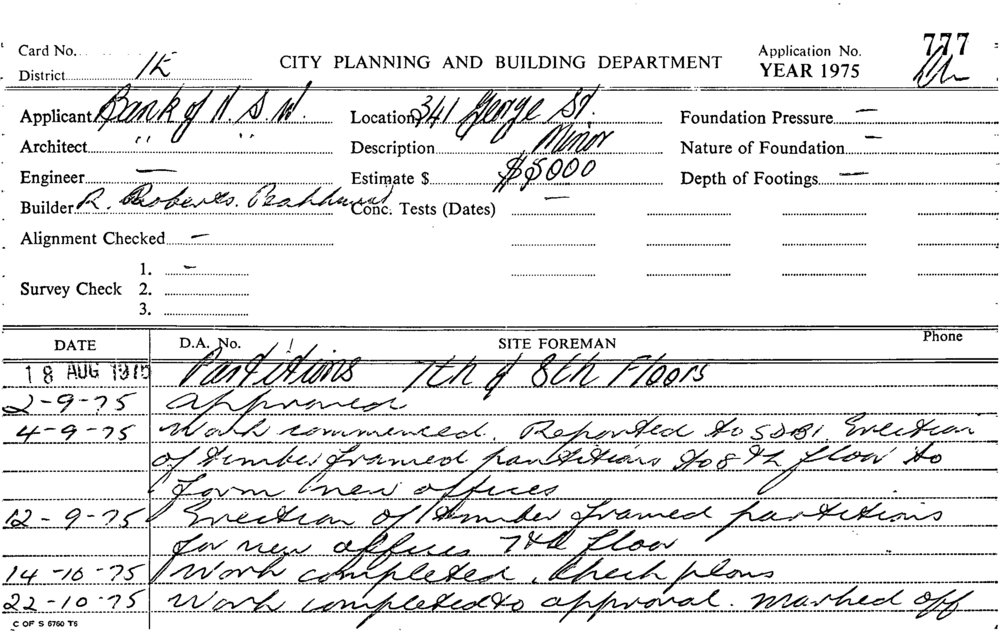 Card No.
Application No. 777
District 1E
CITY PLANNING AND BUILDING DEPARTMENT
YEAR 1975
Applicant Bank of N.S.W.
Location 341 George St.
Foundation Pressure —
Architect " "
Description Minor
Nature of Foundation —
Engineer —
Estimate $ $5000
Depth of Footings —
Builder R. Roberts. Peakhurst
Conc. Tests (Dates) —
Alignment Checked —
1. —
Survey Check 2.
3.
DATE D.A. No. SITE FOREMAN Phone
18 AUG 1975 Partitions 7th & 8th Floors
2-9-75 Approved
4-9-75 Work commenced. Reported to SDBI. Erection
of timber framed partitions to 8th floor to
form new offices
12-9-75 Erection of timber framed partitions
for new offices 7th floor
14-10-75 Work completed. Check plans
22-10-75 Work completed to approval. Marked off
C OF S 6760 T6